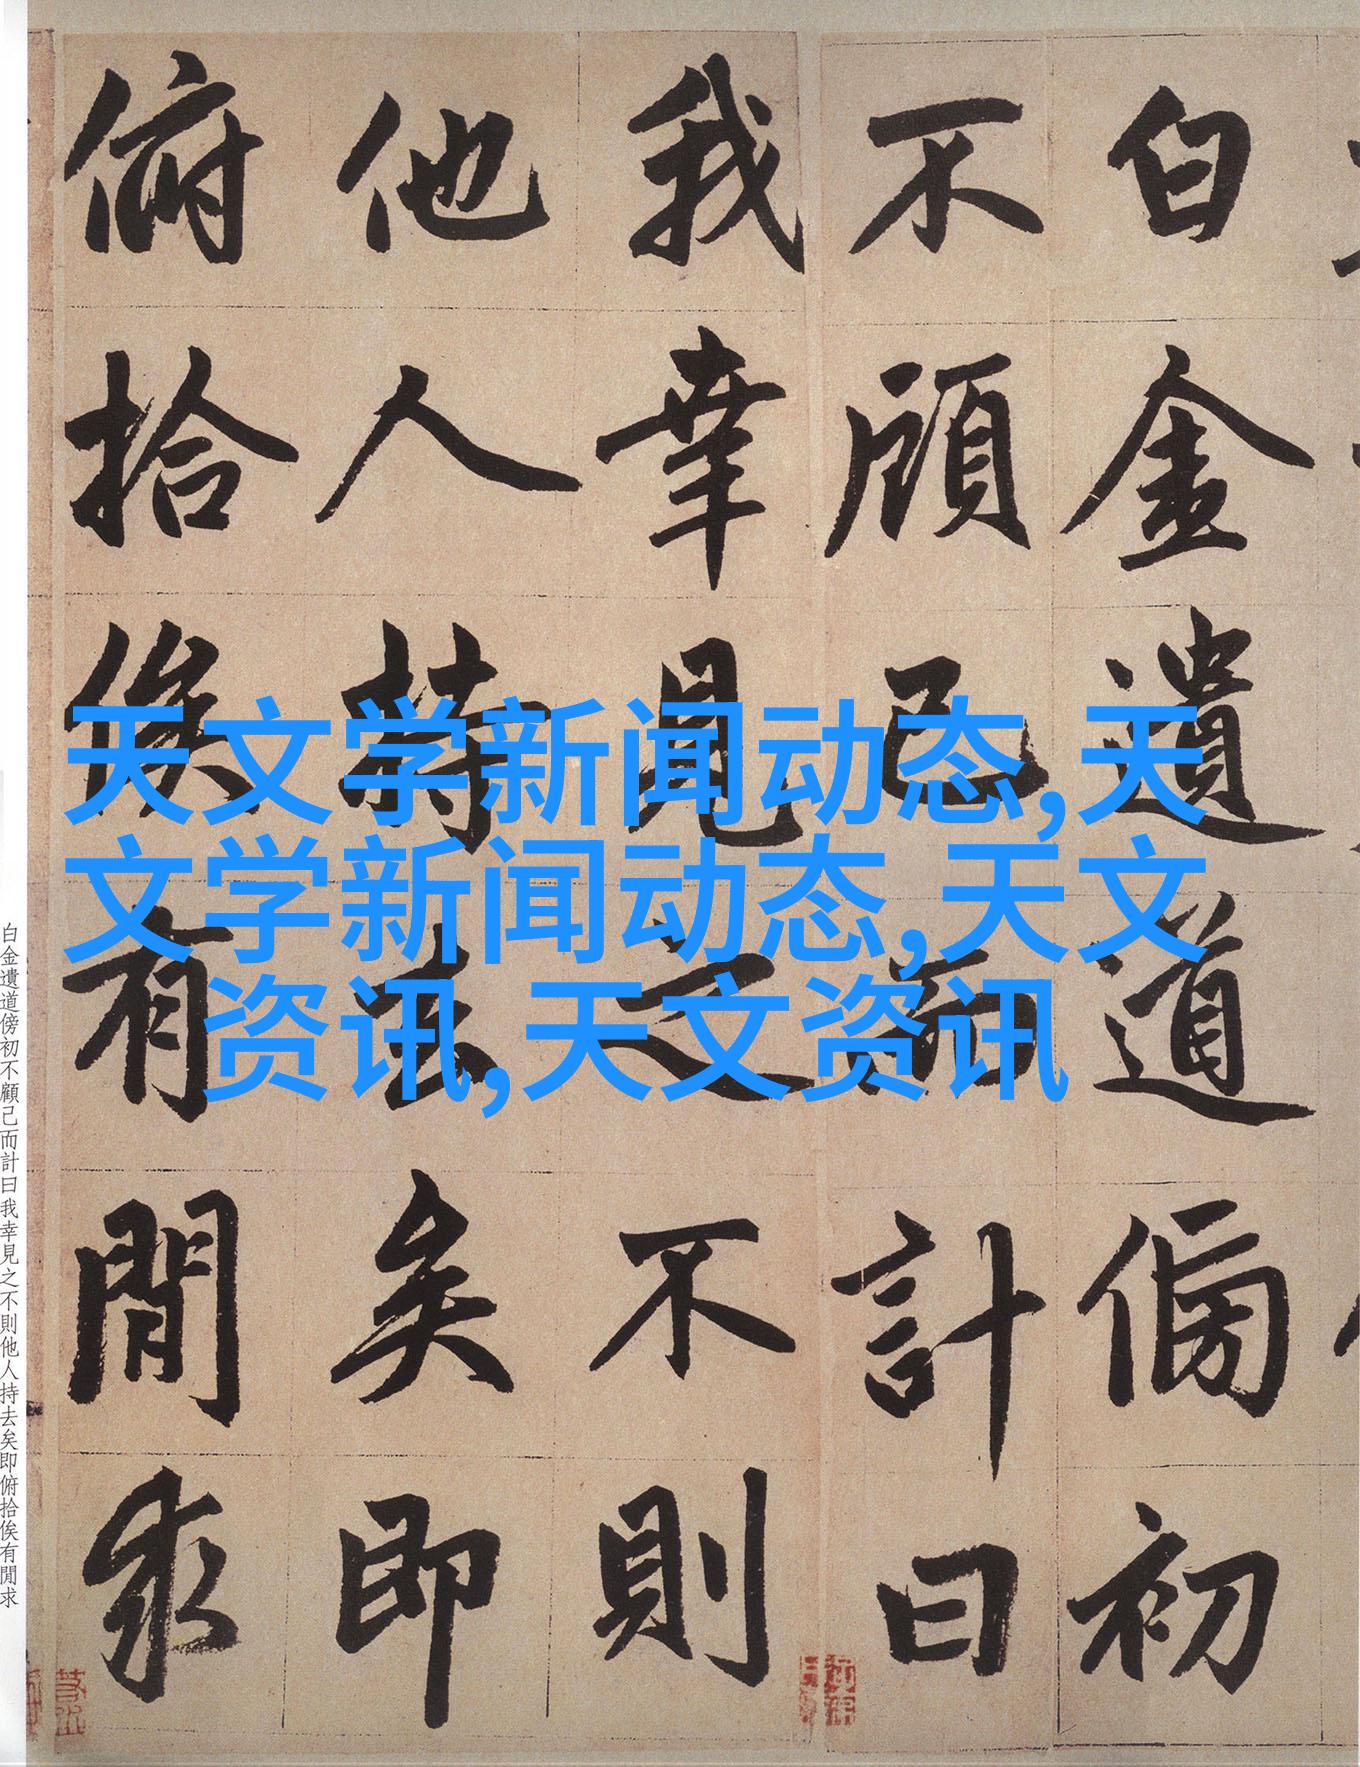 白金遺道傍初
不顧己而計曰
我幸見之不則
他人持去矣即
俯拾俟有閒求
天文学新闻动态,天
文学新闻动态,天文
资讯,天文资讯
白金遺道傍初不顧己而計曰我幸見之不則他人持去矣即俯拾俟有閒求